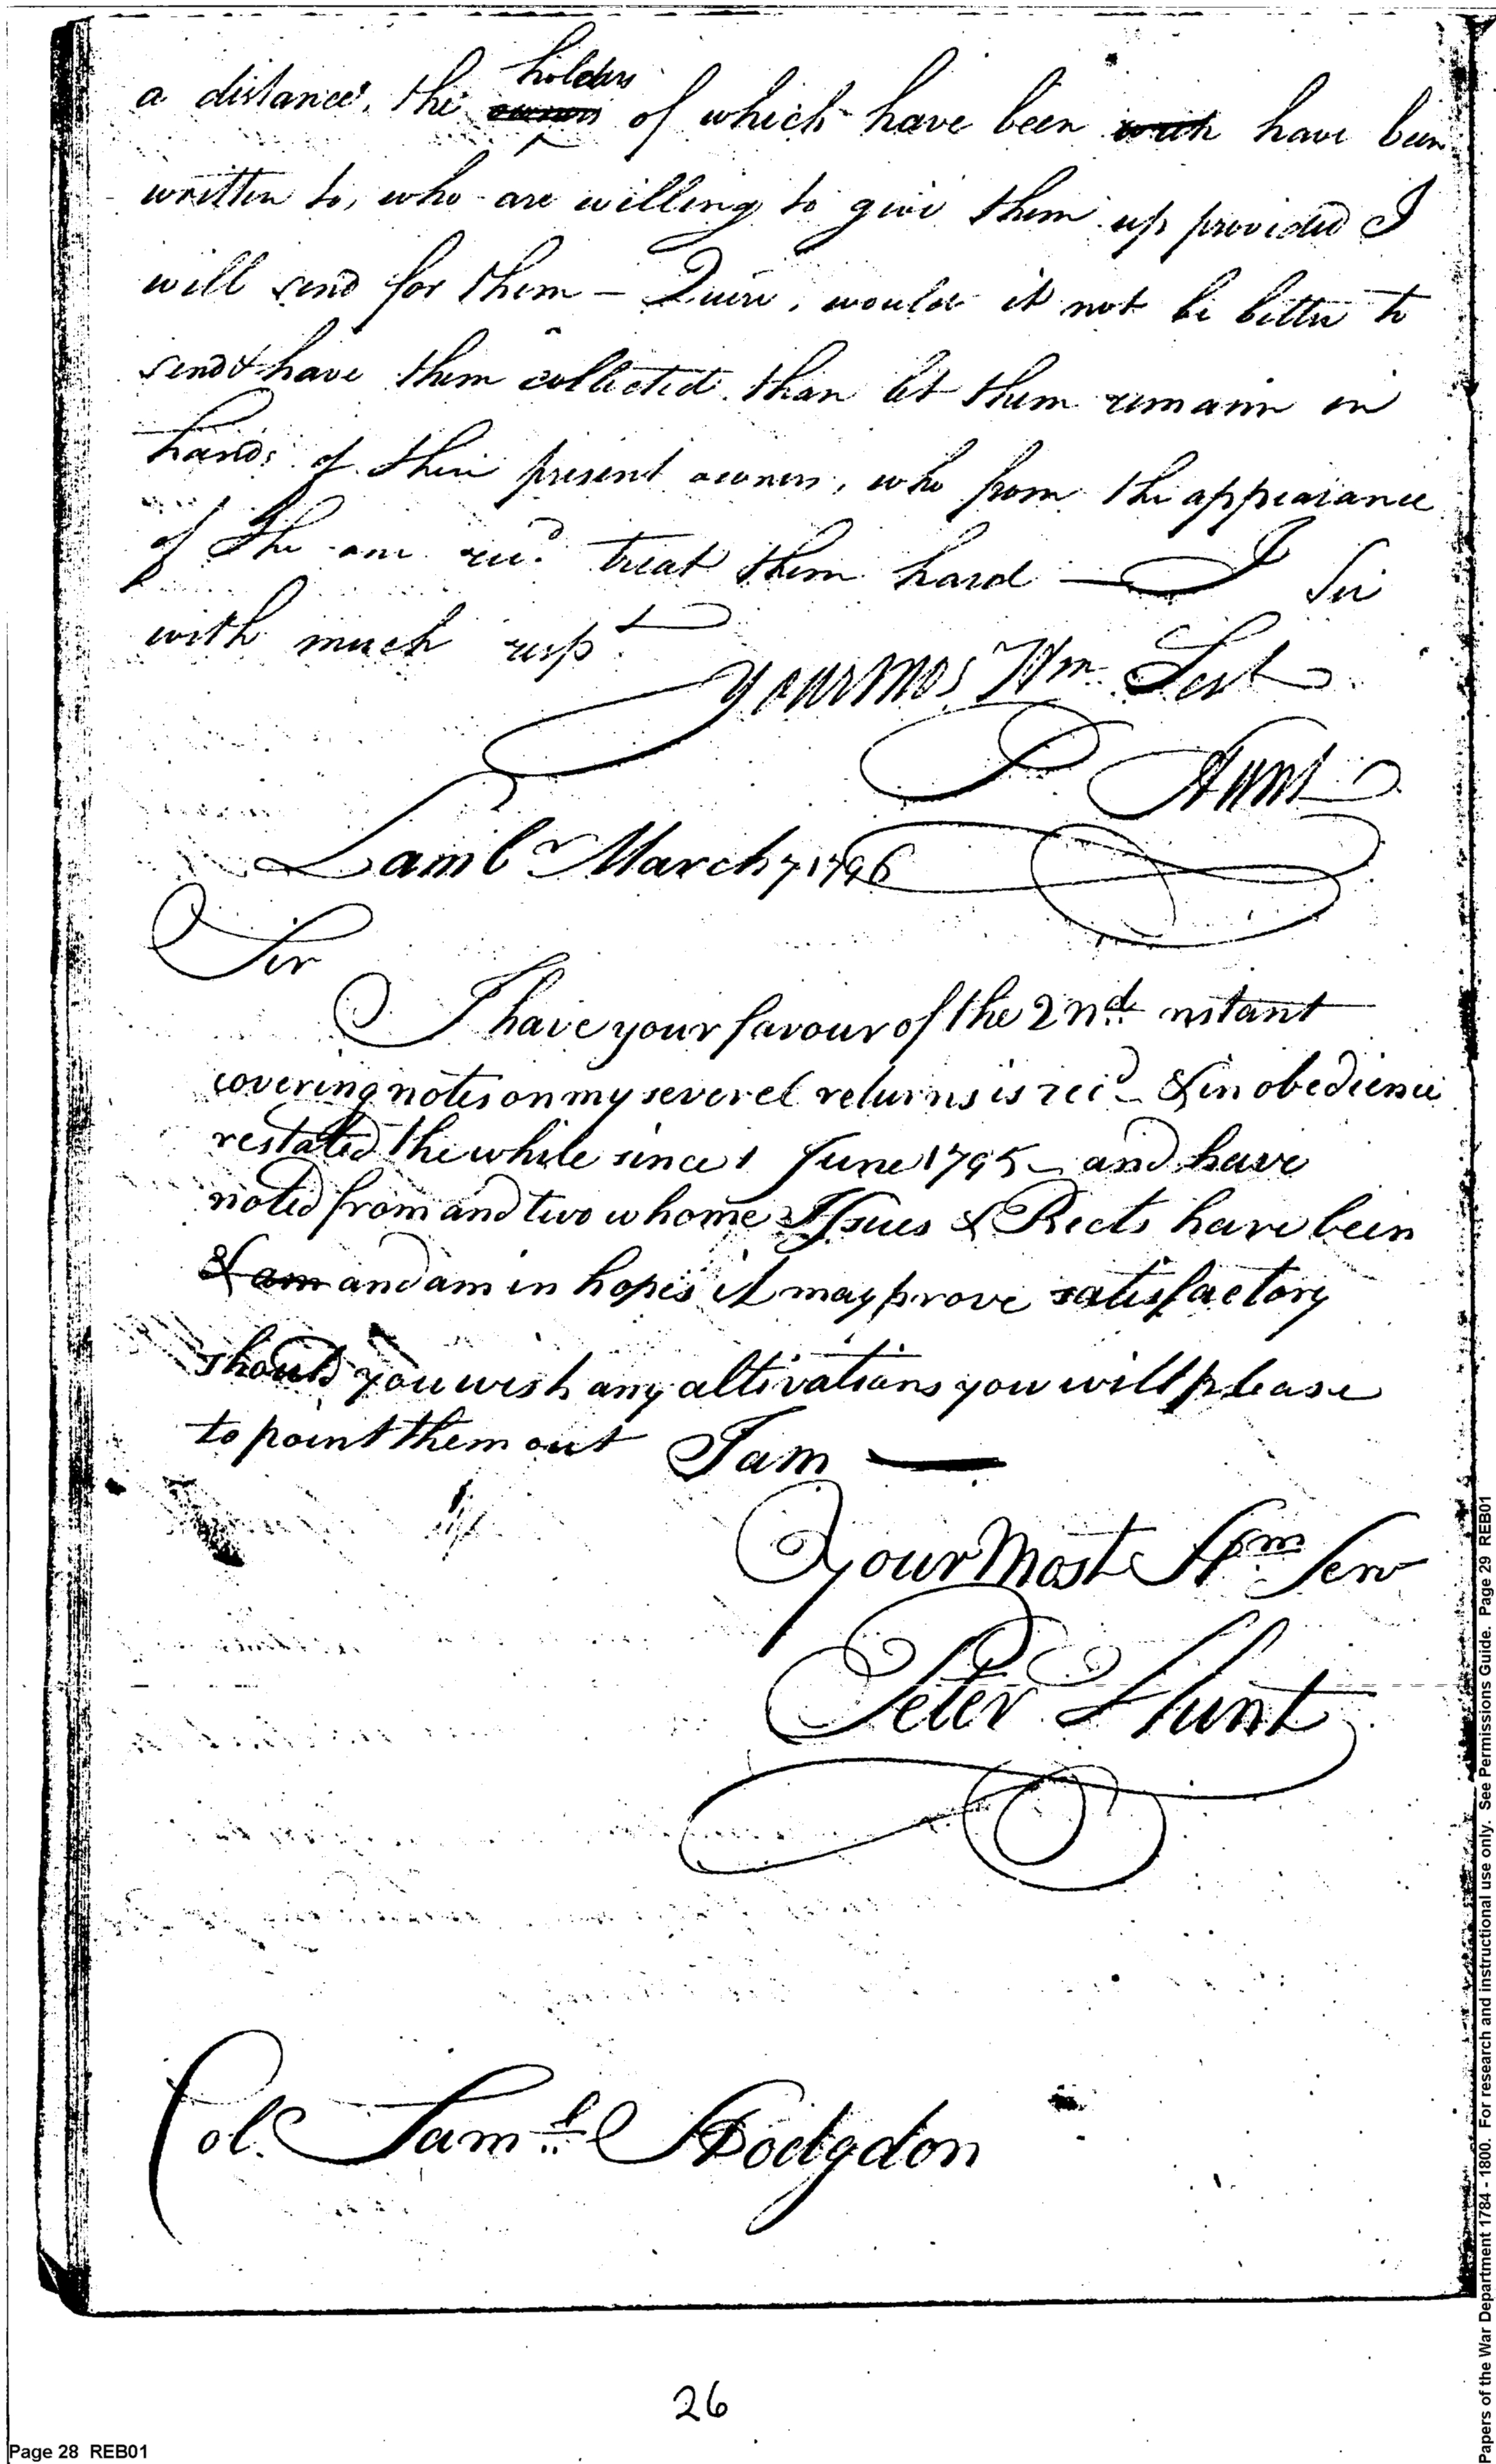 a distance, the owners holders of which have been writ have been
written to, who are willing to give them up provided I
will send for them – Quire, would it not be better to
send & have them collected than let them remain in
hands of their present owners, who from the appearance
of the one recd. treat them hard — I Sir
with much respt.
your mos Hm Sert
P Hunt
Lambr March 7 1796
Sir
I have your favour of the 2nd. nstant
covering notes on my severel returns is recd – & in obedience
restated the while since 1 June 1795 – and have
noted from and two whome Issues & Rects have been
& am and am in hopes it may prove satisfactory
should you wish any altirations you will please
to point them out I am —
Your Most Hm Serv
Peter Hunt
Col. Saml. Hodgdon
26
Page 28 REB01
Papers of the War Department 1784 - 1800. For research and instructional use only. See Permissions Guide. Page 29 REB01